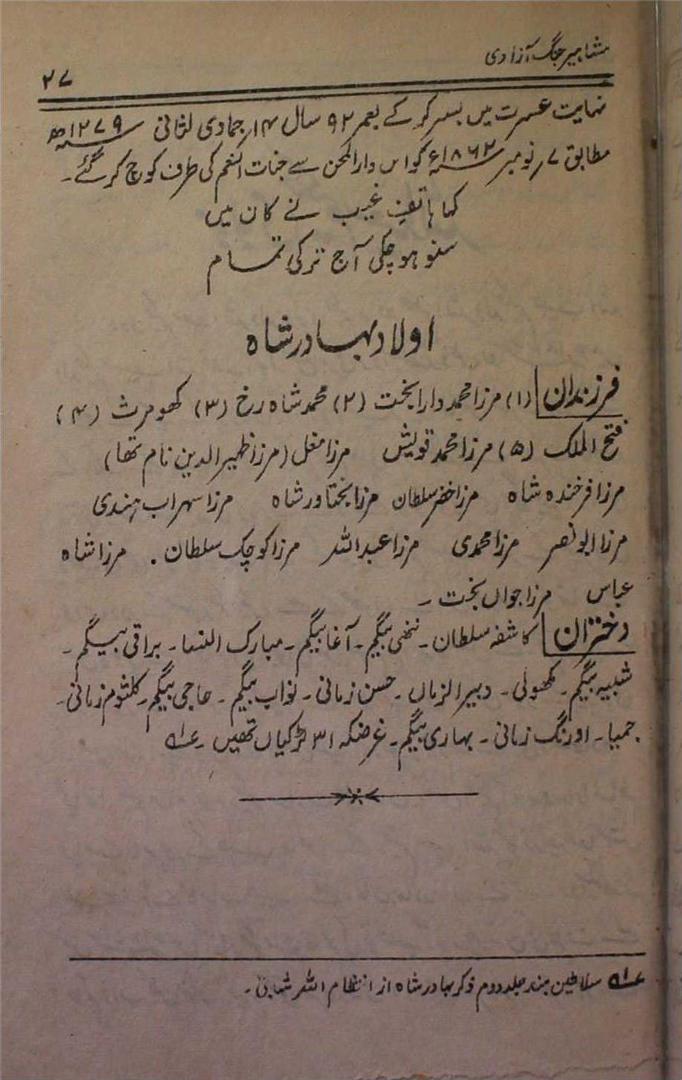 مشاہیر جنگ آزادی
۲۷
نہایت عسرت میں بسر کر کے بعمر ۹۲ سال ۱۴؍ جمادی الثانی ۱۲۷۹ھ
مطابق ۷؍ نومبر ۱۸۶۲ء کو اس دارالمحن سے جنات النعم کی طرف کوچ کر گئے۔
کہا ہاتفِ غیب نے کان میں
سنو ہو چکی آج ترکی تمام
اولاد بہادر شاہ
فرزندان (۱) مرزا محمد دارا بخت (۲) محمد شاہ رخ (۳) کھومرث (۴)
فتح الملک (۵) مرزا محمد قویش مرزا مغل (مرزا ظہیر الدین نام تھا)
مرزا فرخندہ شاہ مرزا خضر سلطان مرزا بختاور شاہ مرزا سہراب ہندی
مرزا ابو نصر مرزا محمدی مرزا عبد اللہ مرزا کوچک سلطان . مرزا شاہ
عباس مرزا جواں بخت ۔
دختران کاشفہ سلطان۔ ننھی بیگم۔ آغا بیگم۔ مبارک النسا۔ براقی بیگم۔
شبیہ بیگم۔ کھولی۔ دبیر الزماں۔ حسن زمانی۔ نواب بیگم۔ حاجی بیگم۔ کلثوم زمانی۔
جمیا۔ اورنگ زمانی۔ بہاری بیگم۔ غرضکہ ۳۱ لڑکیاں تھیں ۔ ؎۱
؎۱ سلاطین ہند جلد دوم ذکر بہادر شاہ از انتظام اللہ شہابی۔